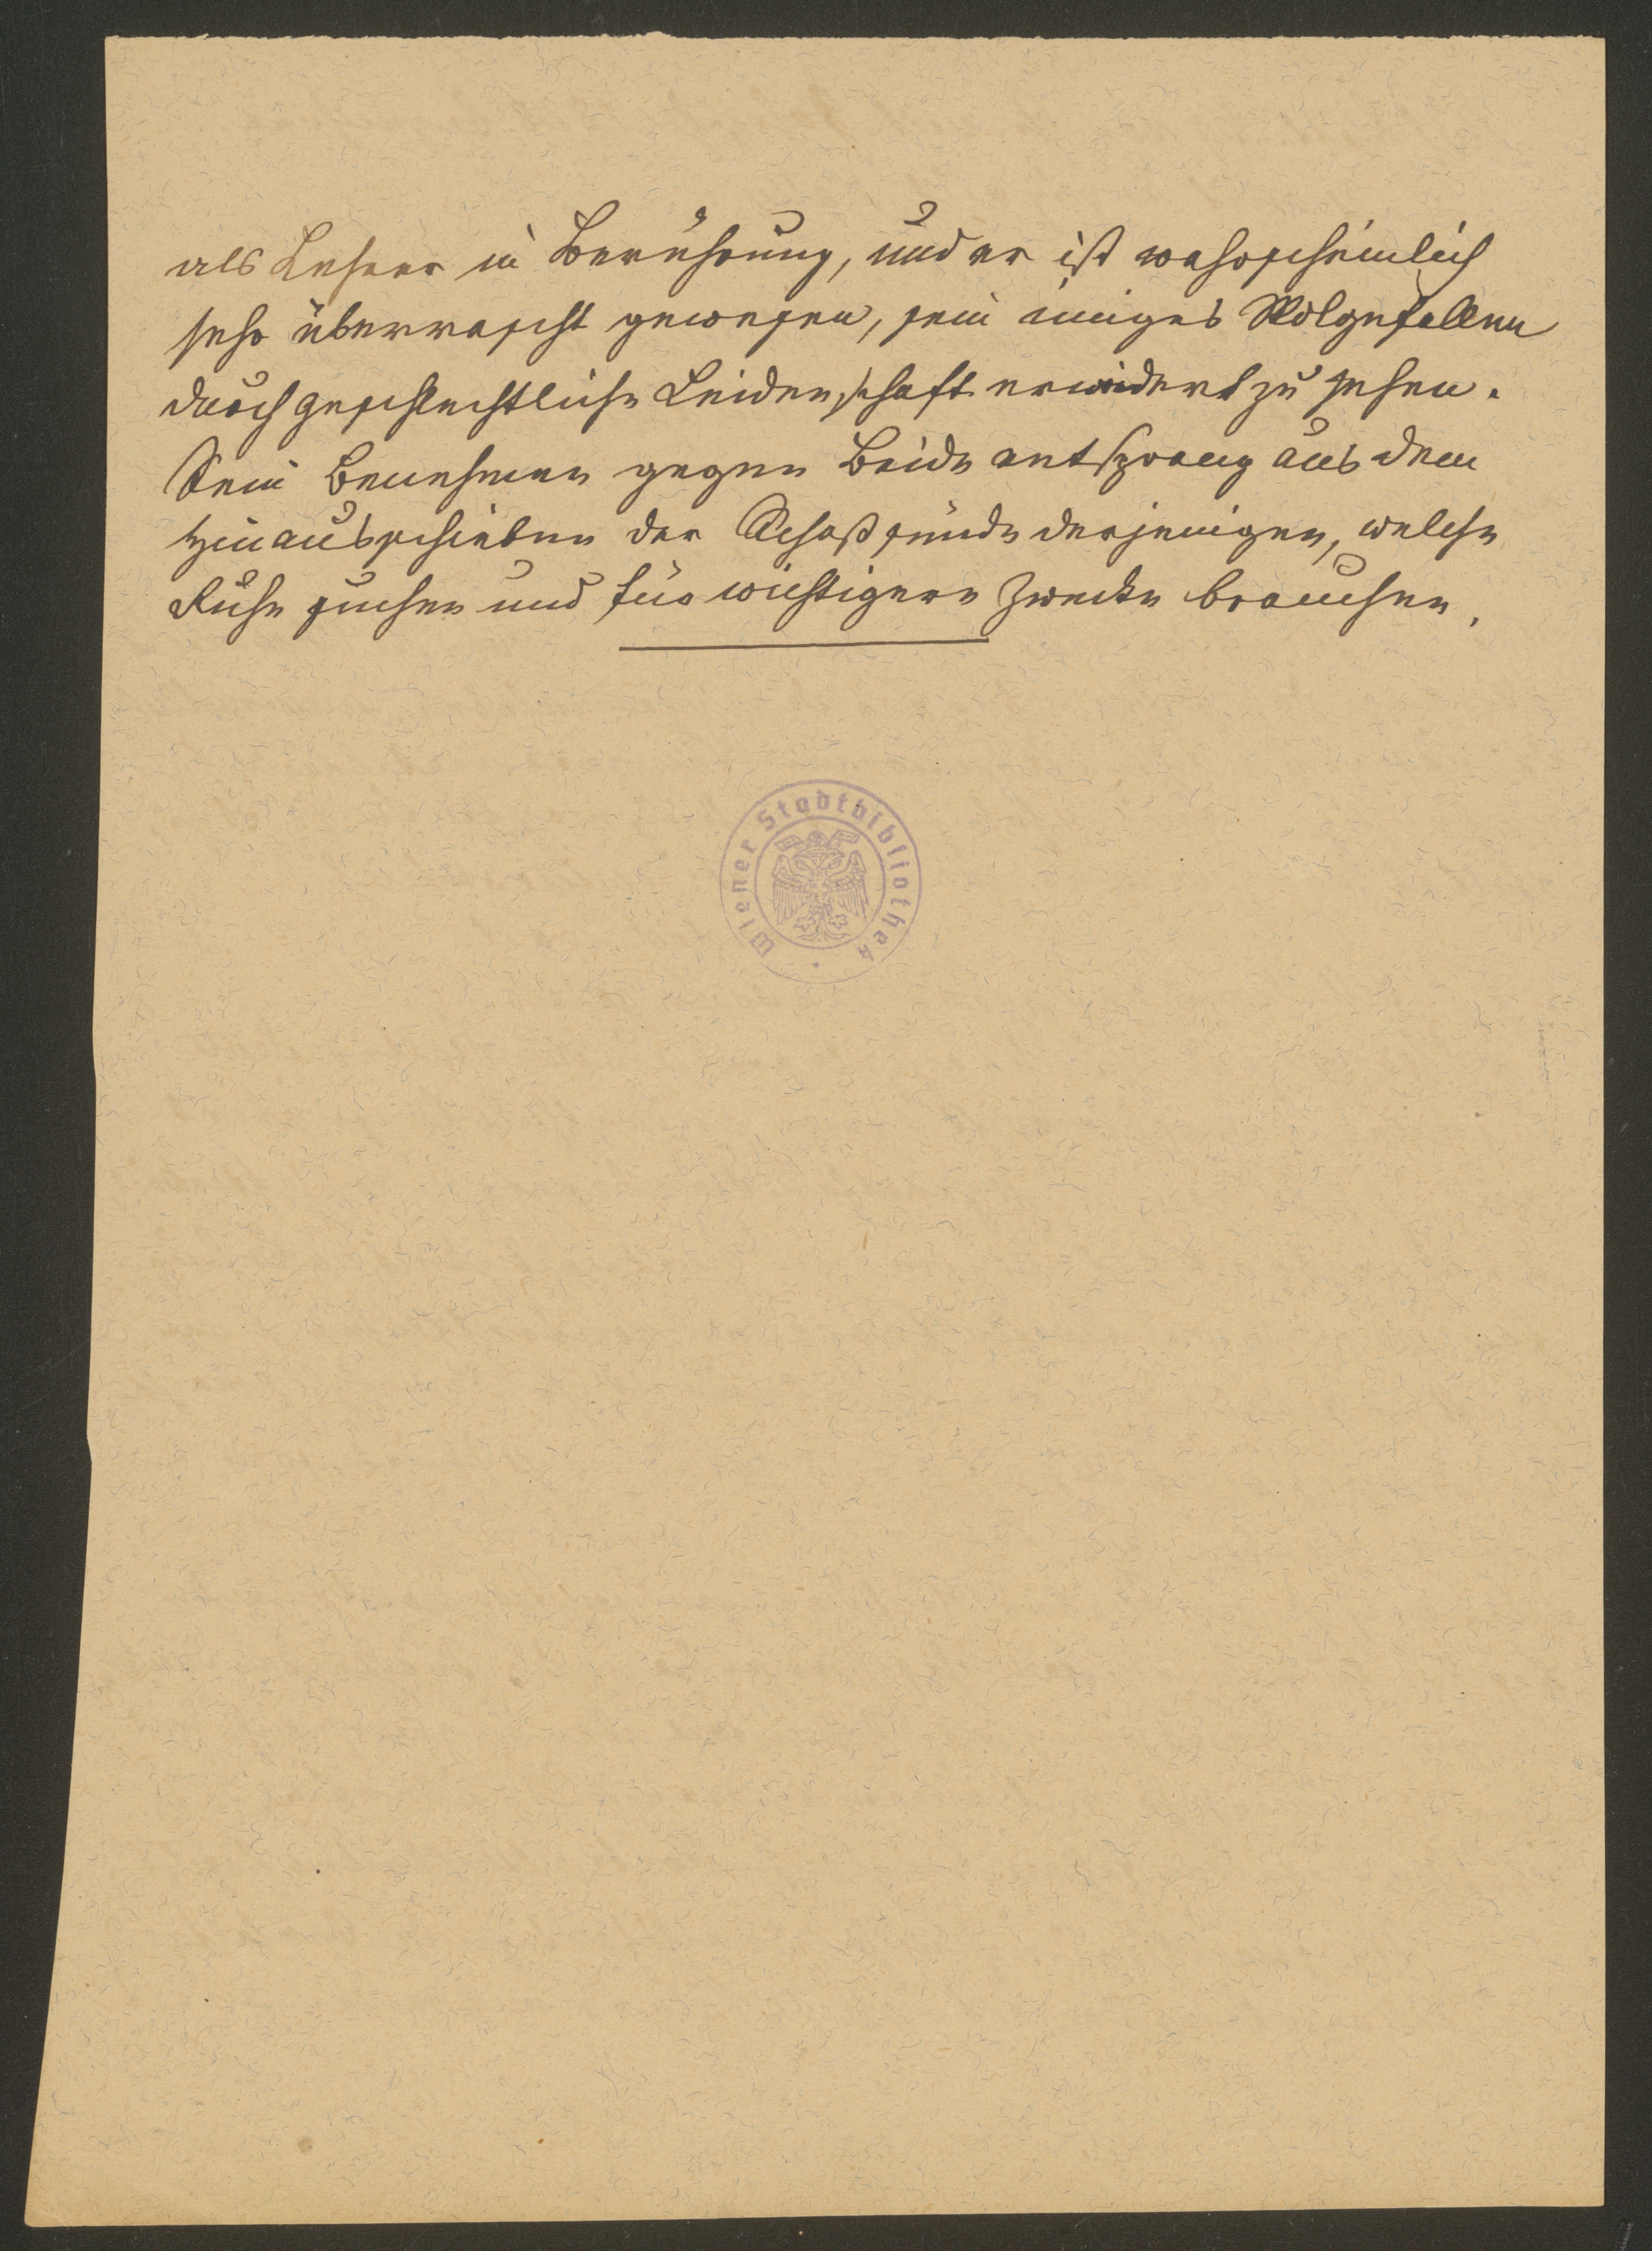 als Lehrer in Berührung, und er ist wahrscheinlich
sehr überrascht gewesen, sein inniges Wolgefallen
durch geschlechtliche Leidenschaft erwidert zu sehen.
Sein Benehmen gegen Beide entsprang aus dem
Hinausschieben der Schoßsünde derjenigen, welche
Ruhe suchen und für wichtigere Zwecke brauchen.
Wiener Stadtbibliothek